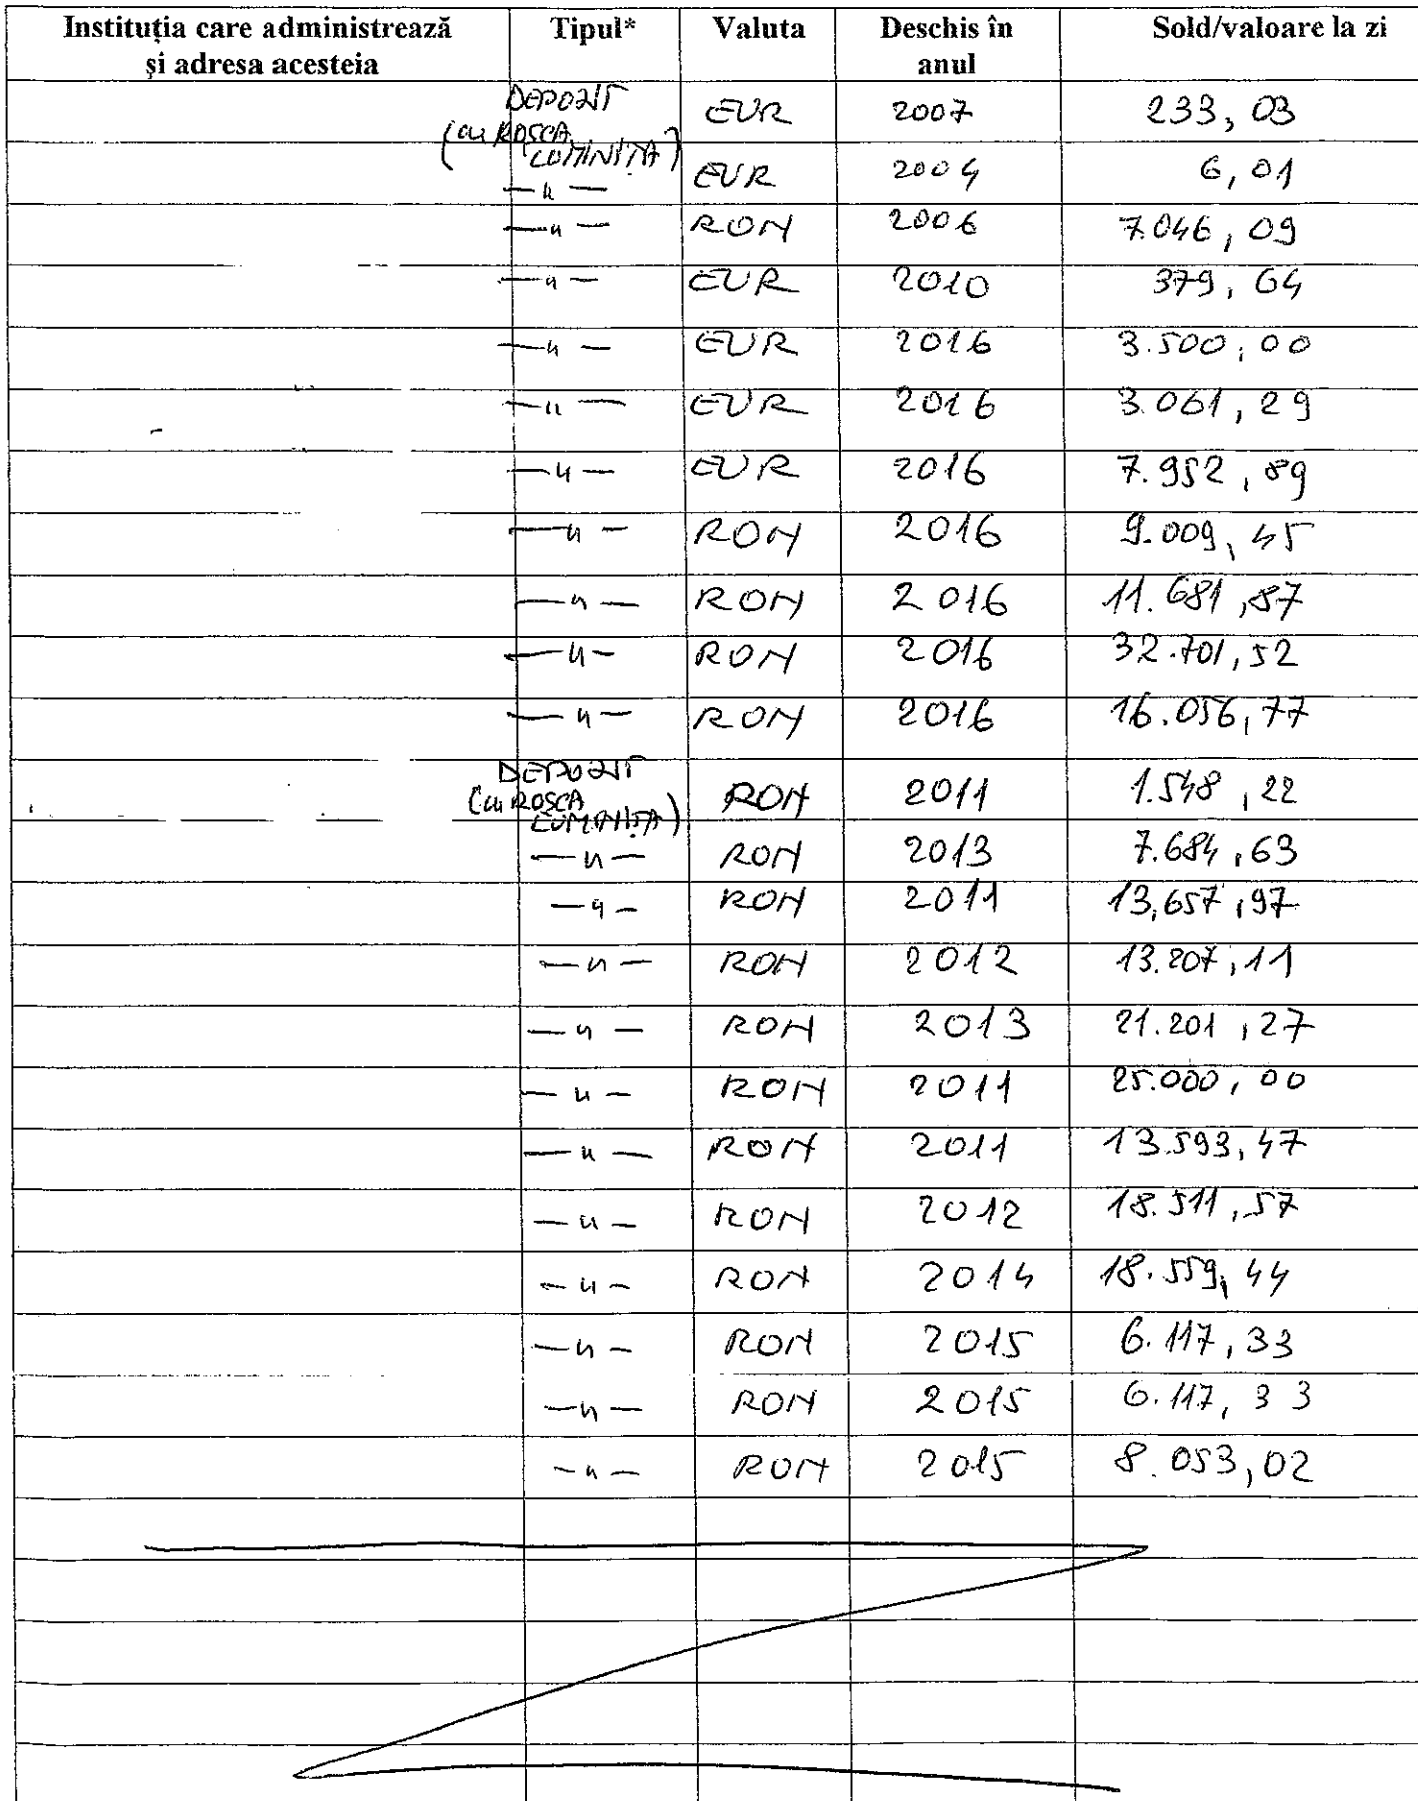 Instituția care administrează și adresa acesteia Tipul* Valuta Deschis în anul Sold/valoare la zi
DEPOZIT (cu ROȘCA LUMINIȚA) EUR 2007 233,03
—„— EUR 2004 6,01
—„— RON 2006 7.046,09
—„— EUR 2010 379,64
—„— EUR 2016 3.500,00
—„— EUR 2016 3.061,29
—„— EUR 2016 7.952,89
—„— RON 2016 9.009,45
—„— RON 2016 11.681,87
—„— RON 2016 32.701,52
—„— RON 2016 16.056,77
DEPOZIT (cu ROȘCA LUMINIȚA) RON 2011 1.548,22
—„— RON 2013 7.684,63
—„— RON 2011 13,657,97
—„— RON 2012 13.207,11
—„— RON 2013 21.201,27
—„— RON 2011 25.000,00
—„— RON 2011 13.593,47
—„— RON 2012 18.511,57
—„— RON 2014 18.559,44
—„— RON 2015 6.117,33
—„— RON 2015 6.117,33
—„— RON 2015 8.053,02